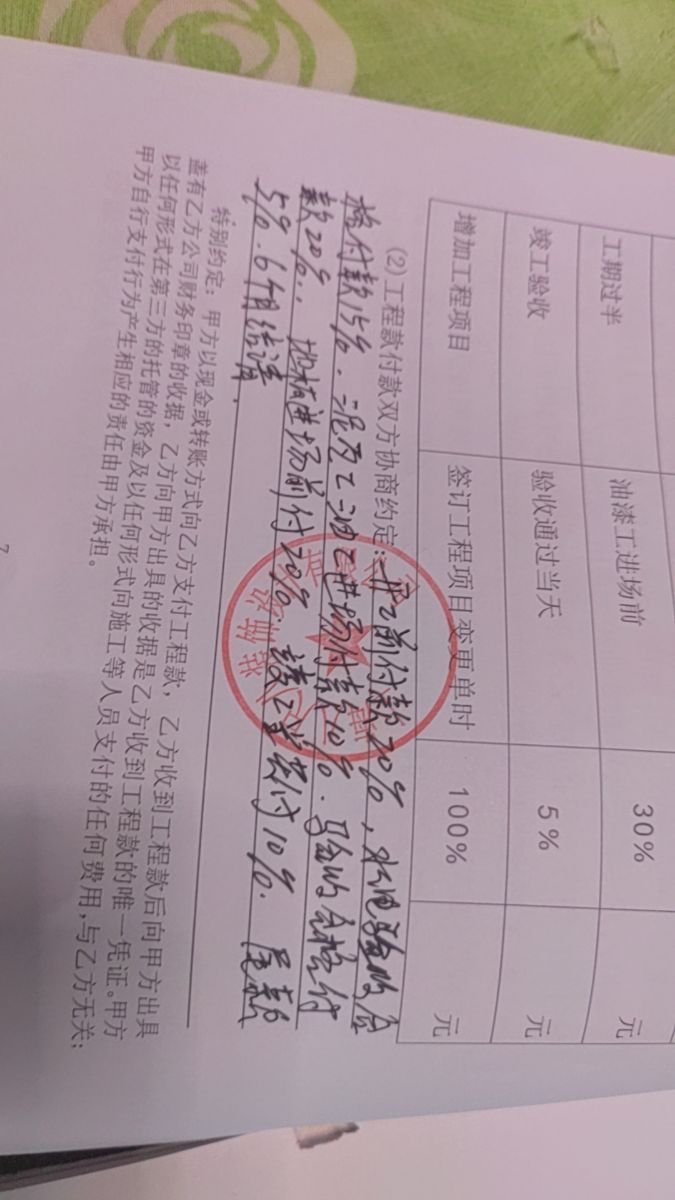 工期过半 油漆工进场前 30% 元
竣工验收 验收通过当天 5% 元
增加工程项目 签订工程项目变更单时 100% 元
(2)工程款付款双方协商约定:开工前付款20%,水电验收合
格付款15%.泥瓦工油工进场付款10%.验收合格付
款20%.地板进场前付20%.竣工当天付10%.尾款
5%.6个月结清.
特别约定:甲方以现金或转账方式向乙方支付工程款,乙方收到工程款后向甲方出具
盖有乙方公司财务印章的收据,乙方向甲方出具的收据是乙方收到工程款的唯一凭证。甲方
以任何形式在第三方的托管的资金及以任何形式向施工等人员支付的任何费用,与乙方无关;
甲方自行支付行为产生相应的责任由甲方承担。
7
装饰设